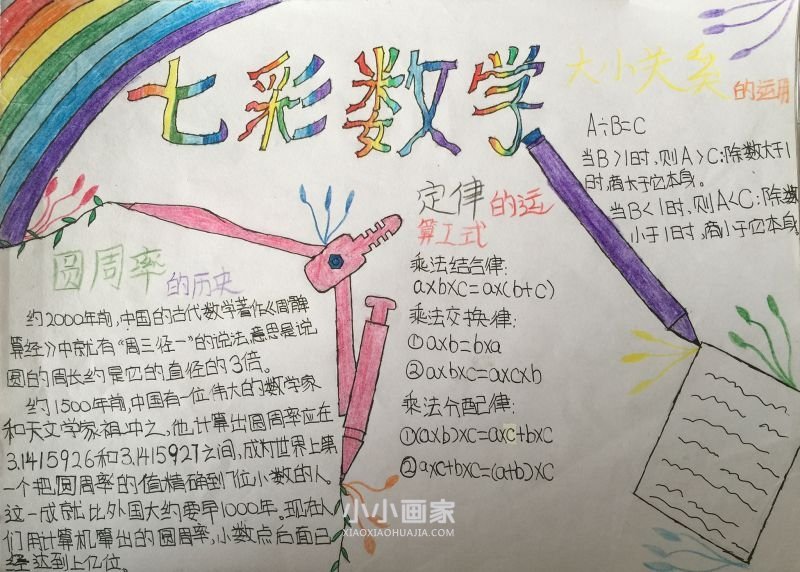 七彩数学
大小关系
的运用
A÷B=C
当B>1时,则A>C:除数大于1
时,商大于它本身。
当B<1时,则A<C:除数
小于1时,商小于它本身
定律的运
算工式
乘法结合律:
axbxc=ax(b+c)
乘法交换律:
①axb=bxa
②axbxc=axcxb
乘法分配律:
①(axb)xc=axc+bxc
②axc+bxc=(a+b)xc
圆周率的历史
约2000年前,中国的古代数学著作《周髀
算经》中就有“周三径一”的说法,意思是说
圆的周长约是它的直径的3倍。
约1500年前,中国有一位伟大的数学家
和天文学家祖冲之,他计算出圆周率应在
3.1415926和3.1415927之间,成为世界上第
一个把圆周率的值精确到7位小数的人。
这一成就比外国大约要早1000年。现在人
们用计算机算出的圆周率,小数点后面已
经达到上亿位。
小小画家
XIAOXIAOHUAJIA.COM